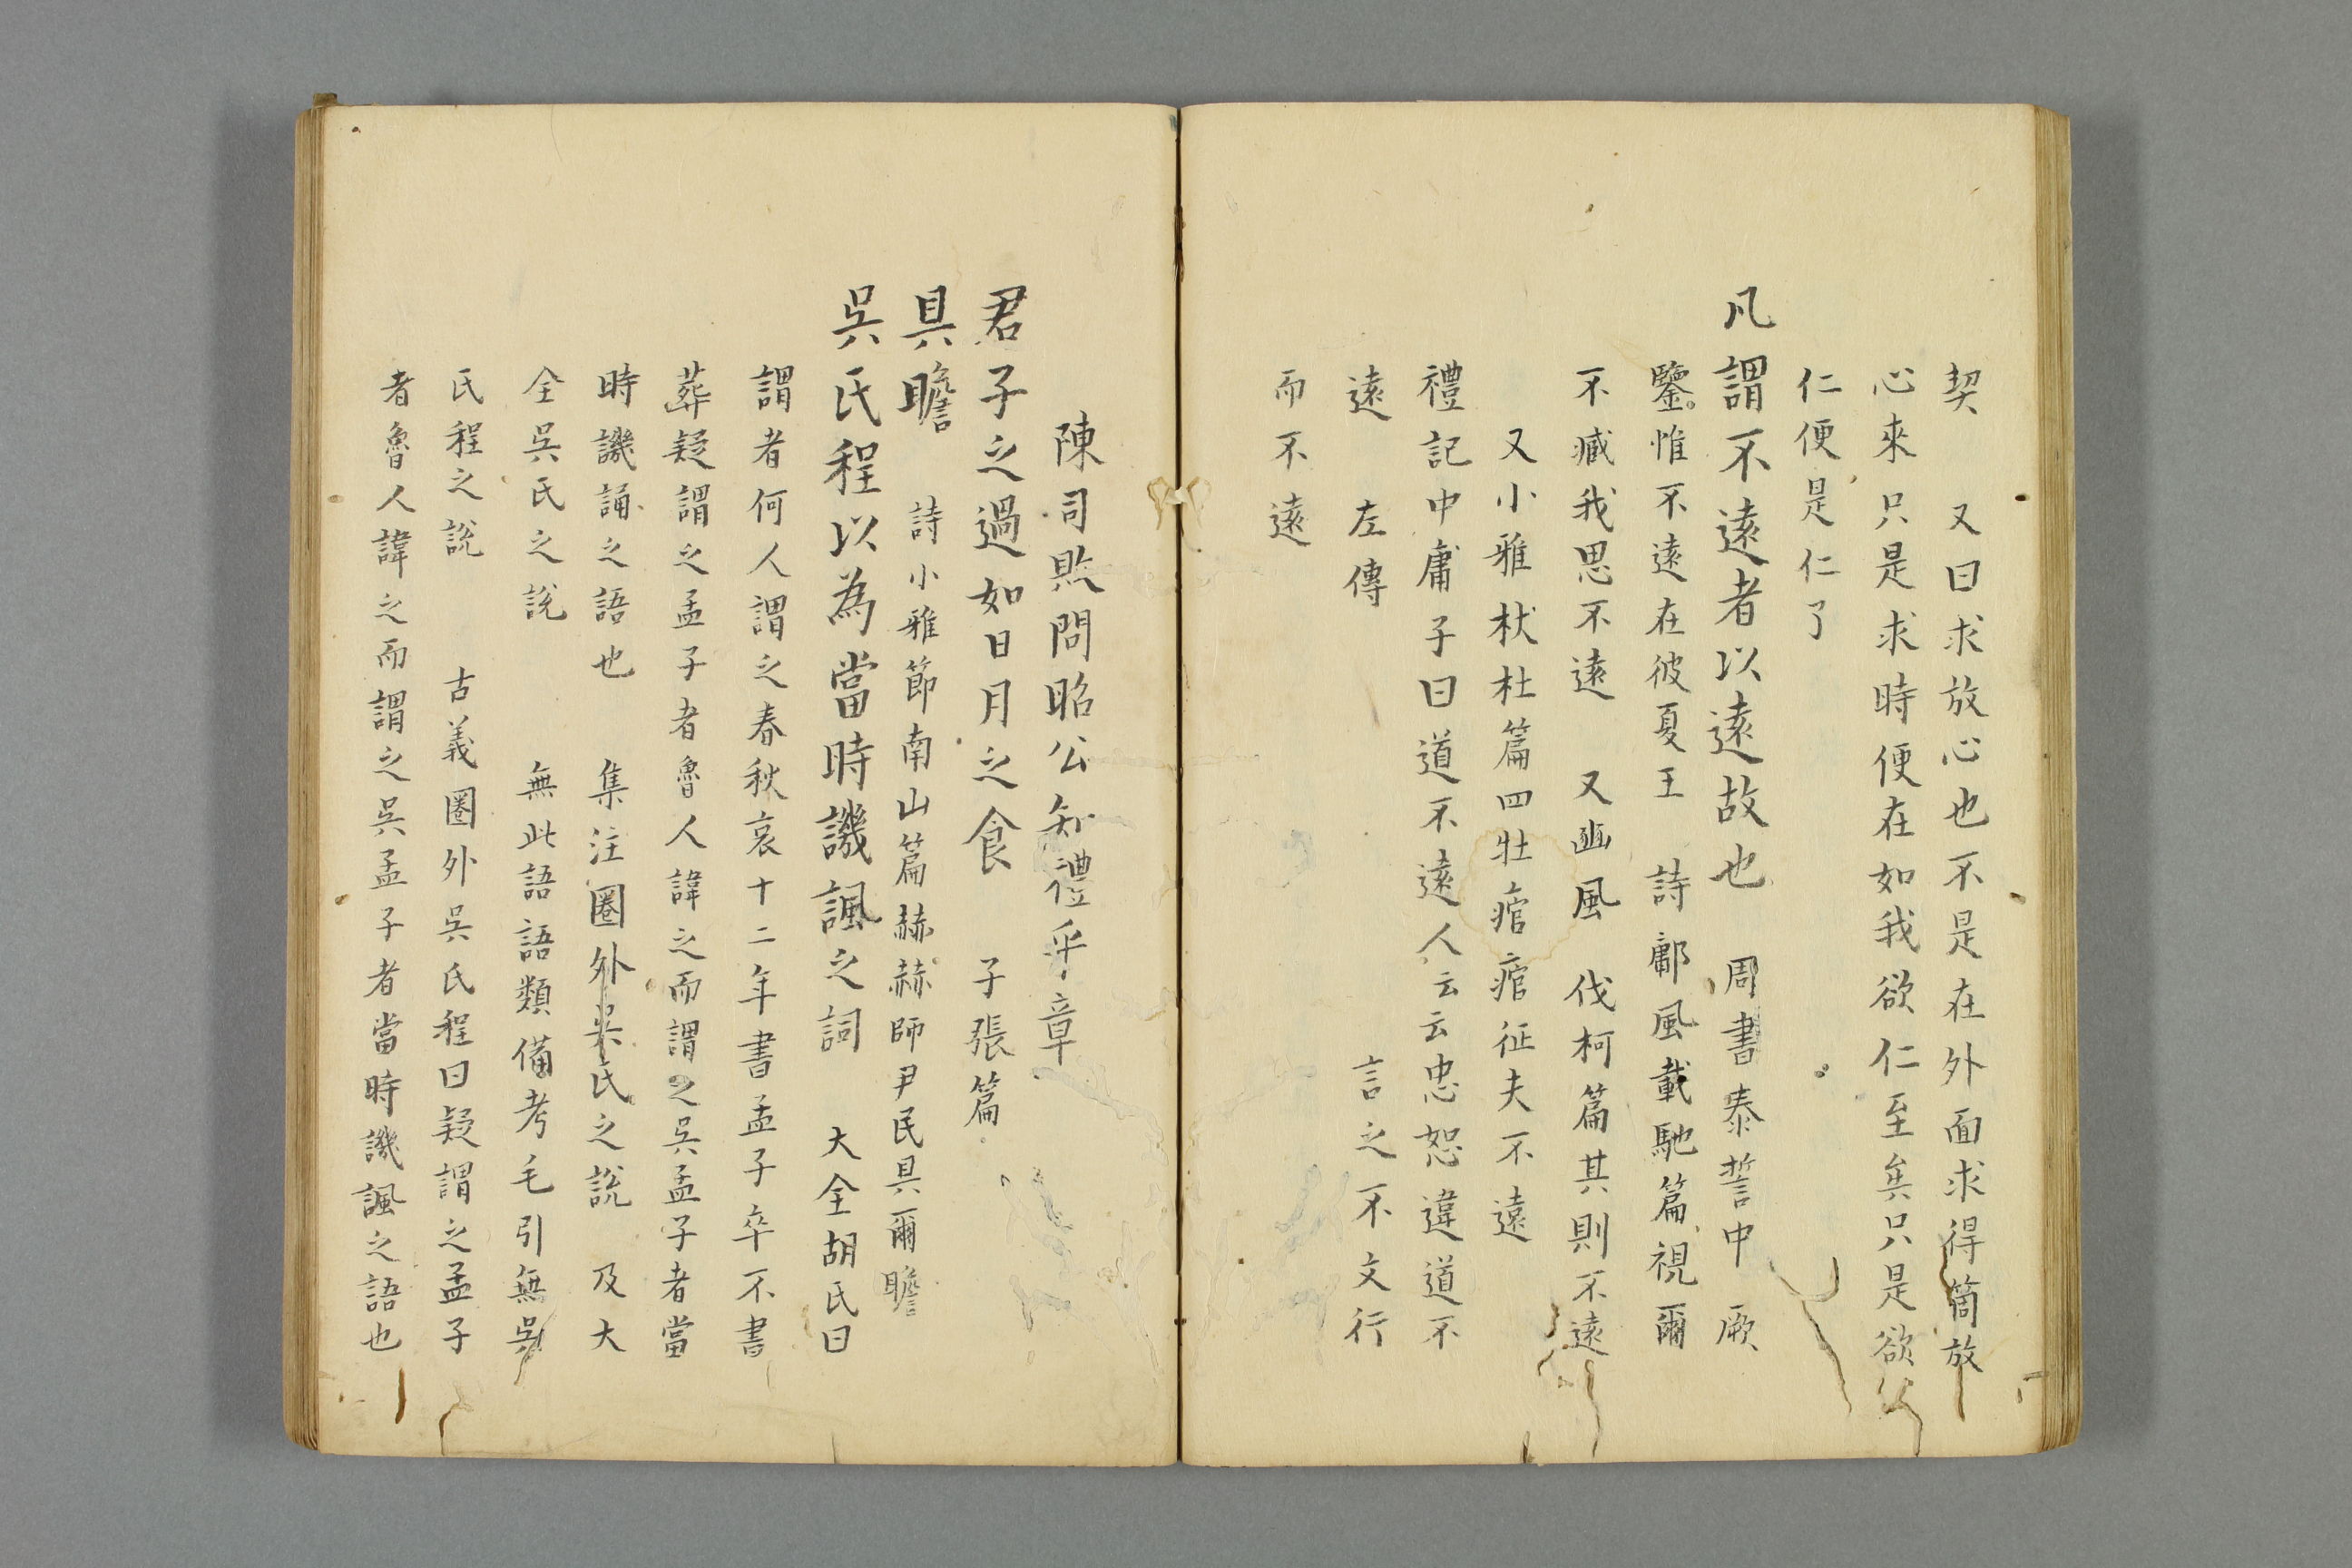 契　又曰求放心也不是在外面求得箇放
心來只是求時便在如我欲仁至矣只是欲
仁便是仁了
凡謂不遠者以遠故也　周書泰誓中　厥
鑒惟不遠在彼夏王　詩鄘風載馳篇視爾
不臧我思不遠　又豳風　伐柯篇其則不遠
又小雅杕杜篇四牡痯痯征夫不遠
禮記中庸子曰道不遠人云云忠恕違道不
遠　左傳　言之不文行
而不遠
陳司敗問昭公知禮乎章
君子之過如日月之食　子張篇
具瞻　詩小雅節南山篇赫赫師尹民具爾瞻
吳氏程以為當時譏諷之詞　大全胡氏曰
謂者何人謂之春秋哀十二年書孟子卒不書
葬疑謂之孟子者魯人諱之而謂之吳孟子者當
時譏誦之語也　集注圈外吳氏之說　及大
全吳氏之說　無此語語類備考毛引無吳
氏程之說　古義圈外吳氏程曰疑謂之孟子
者魯人諱之而謂之吳孟子者當時譏諷之語也